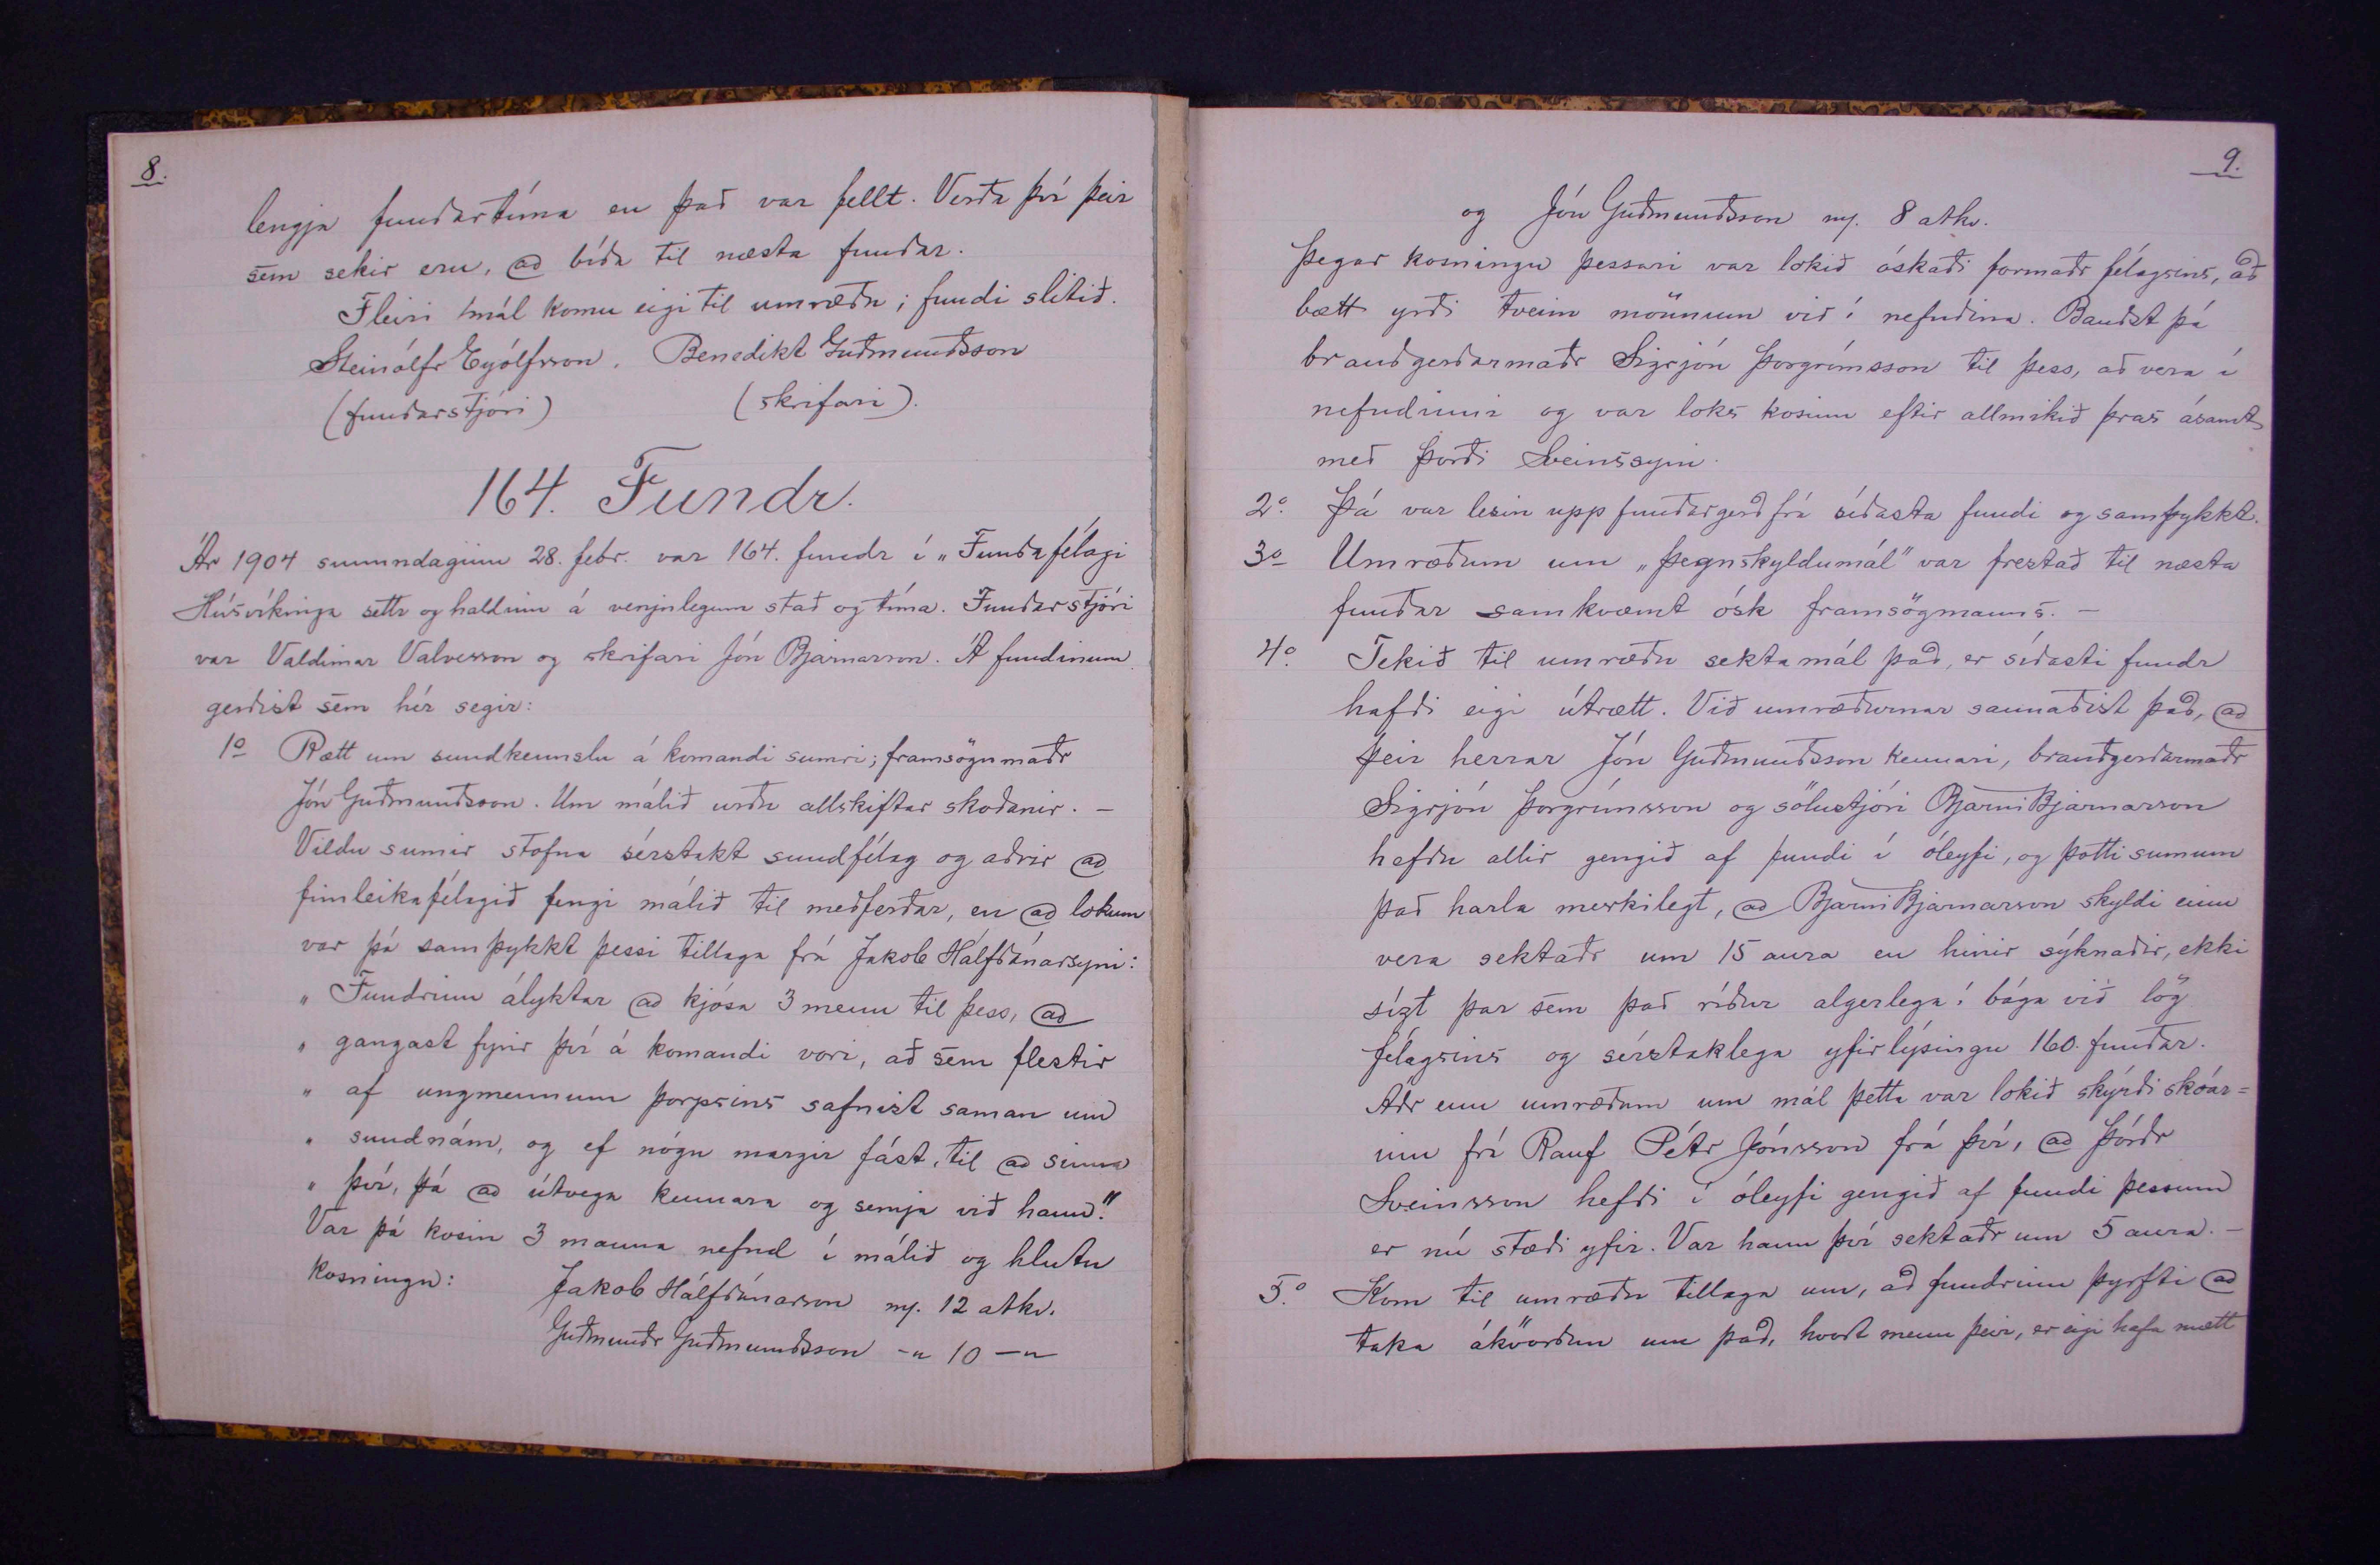 8.
lengja fundartíma en það var fellt. Verða því þeir
sem sekir eru, að bíða til næsta fundar.
Fleiri mál komu eigi til umræðu; fundi slitið.
Steinólfr Eyólfsson. Benedikt Guðmundsson
(fundarstjóri) (skrifari).
164. Fundr.
Ár 1904 sunnudaginn 28. febr. var 164. fundr í „Fundafélagi
Húsvíkinga settr og haldinn á venjulegum stað og tíma. Fundarstjóri
var Valdimar Valvesson og skrifari Jón Bjarnarson. Á fundinum
gerðist sem hér segir:
1o Rætt um sundkennslu á komandi sumri; framsögumaðr
Jón Guðmundsson. Um málið urðu allskiftar skoðanir. –
Vildu sumir stofna sérstakt sundfélag og aðrir að
fimleikafélagið fengi málið til meðferðar, en að lokum
var þá samþykkt þessi tillaga frá Jakob Hálfdánarsyni:
„ Fundrinn ályktar að kjósa 3 menn til þess, að
„ gangast fyrir því á komandi vori, að sem flestir
„ af ungmennum þorpsins safnist saman um
„ sundnám, og ef nógu margir fást, til að sinna
„ því, þá að útvega kennara og semja við hann."
Var þá kosin 3 manna nefnd í málið og hlutu
kosningu: Jakob Hálfdánarson m. 12 atkv.
Guðmundr Guðmundsson -„ 10 -„
9.
og Jón Guðmundsson m. 8 atkv.
Þegar kosningu þessari var lokið óskaði formaðr félagsins, að
bætt yrði tveim mönnum við í nefndina. Bauðst þá
brauðgerðarmaðr Sigrjón Þorgrímsson til þess, að vera í
nefndinni og var loks kosinn eftir allmikið þras ásamt
með Þorði Sveinssyni.
2o. Þá var lesin upp fundargerð frá síðasta fundi og samþykkt.
3o Umræðum um „þegnskyldumál" var frestað til næsta
fundar samkvæmt ósk framsögmanns. –
4o. Tekið til umræðu sektamál það, er síðasti fundr
hafði eigi útrætt. Við umræðurnar sannaðist það, að
þeir herrar Jón Guðmundsson kennari, brauðgerðarmaðr
Sigrjón Þorgrímsson og sölustjóri Bjarni Bjarnarson
hefðu allir gengið af fundi í óleyfi, og þótti sumum
það harla merkilegt, að Bjarni Bjarnarson skyldi einn
vera sektaðr um 15 aura en hinir sýknaðir, ekki
sízt þar sem það ríður algerlega í bága við lög
félagsins og sérstaklega yfirlýsingu 160. fundar.
Áðr enn umræðum um mál þetta var lokið skýrði skóar=
inn frá Rauf Pétr Jónsson frá því, að Þórðr
Sveinsson hefði í óleyfi gengið af fundi þessum
er nú stæði yfir. Var hann því sektaðr um 5 aura. –
5.o Kom til umræðu tillaga um, að fundrinn þyrfti að
taka ákvörðun um það, hvort menn þeir, er eigi hafa mætt